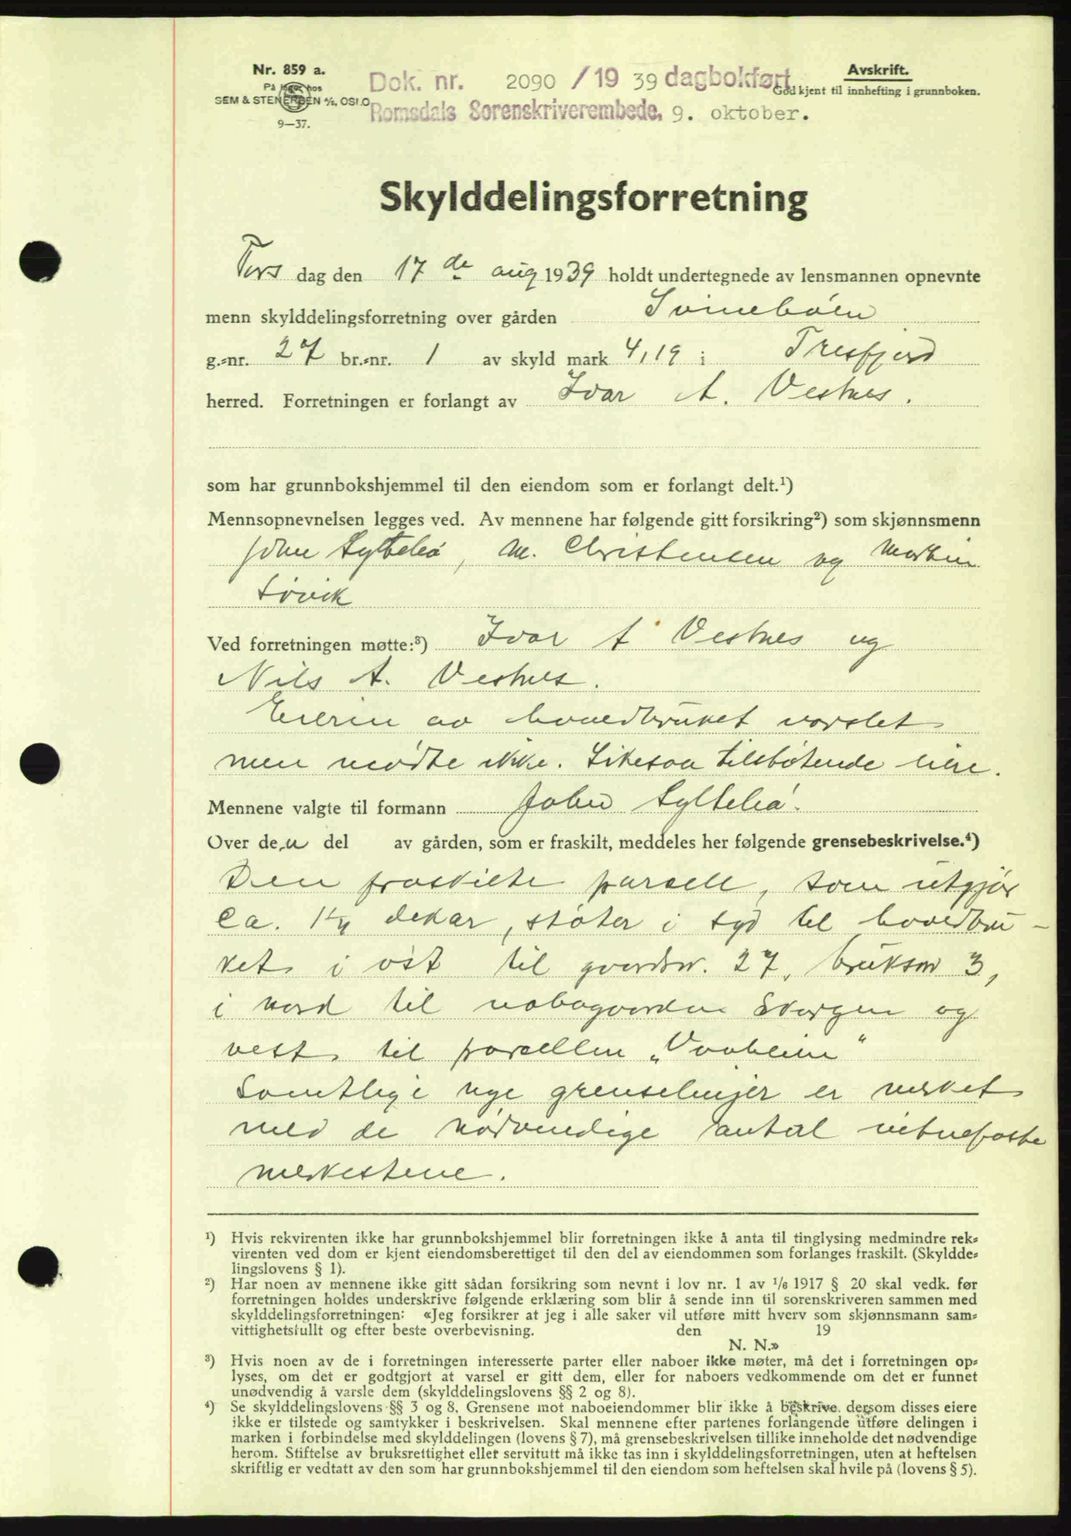 Nr. 859 a.
På lager hos
SEM & STENERSEN A/S, OSLO
9—37.
Dok. nr. 2090 / 19 39 dagbokført
Romsdals Sorenskriverembede, 9. oktober.
Avskrift.
Godkjent til innhefting i grunnboken.
Skylddelingsforretning
Tors dag den 17 de aug 1939 holdt undertegnede av lensmannen opnevnte
menn skylddelingsforretning over gården Svinebøen
g.-nr. 27 br.-nr. 1 av skyld mark 4,19 i Tresfjord
herred. Forretningen er forlangt av Ivar A. Vestnes.
som har grunnbokshjemmel til den eiendom som er forlangt delt.¹)
Mennsopnevnelsen legges ved. Av mennene har følgende gitt forsikring²) som skjønnsmenn
John Syltebø, M. Christensen og Martin
Søvik
Ved forretningen møtte:³) Ivar A Vestnes og
Nils A. Vestnes.
Eieren av hovedbruket varslet
men mødte ikke. Likesaa tilstøtende eiere.
Mennene valgte til formann John Syltebø.
Over den del av gården, som er fraskilt, meddeles her følgende grensebeskrivelse.⁴)
Den fraskilte parsell, som utgjør
ca. 1¼ dekar, støter i syd til hovedbru-
ket i øst til gaardsnr. 27, bruksnr 3,
i nord til nabogaarden Skorgen og
vest til parsellen „Vonheim“
Samtlige nye grenselinjer er merket
med de nødvendige antal vitnefaste
merkestene.
¹) Hvis rekvirenten ikke har grunnbokshjemmel blir forretningen ikke å anta til tinglysing medmindre rek-
virenten ved dom er kjent eiendomsberettiget til den del av eiendommen som forlanges fraskilt. (Skyldde-
lingslovens § 1).
²) Har noen av mennene ikke gitt sådan forsikring som nevnt i lov nr. 1 av 1/6 1917 § 20 skal vedk. før
forretningen holdes underskrive følgende erklæring som blir å sende inn til sorenskriveren sammen med
skylddelingsforretningen: «Jeg forsikrer at jeg i alle saker vil utføre mitt hverv som skjønnsmann sam-
vittighetsfullt og efter beste overbevisning. den 19
N. N.»
³) Hvis noen av de i forretningen interesserte parter eller naboer ikke møter, må det i forretningen op-
lyses, om det er godtgjort at varsel er gitt dem, eller for naboers vedkommende om det er funnet
unødvendig å varsle dem (skylddelingslovens §§ 2 og 8).
⁴) Se skylddelingslovens §§ 3 og 8. Grensene mot naboeiendommer blir ikke å beskrive, dersom disses eiere
ikke er tilstede og samtykker i beskrivelsen. Skal mennene efter partenes forlangende utføre delingen i
marken i forbindelse med skylddelingen (lovens § 7), må grensebeskrivelsen tillike inneholde det nødvendige
herom. Stiftelse av bruksrettighet eller servitutt må ikke tas inn i skylddelingsforretningen, uten at heftelsen
skriftlig er vedtatt av den som har grunnbokshjemmel til den eiendom som heftelsen skal hvile på (lovens § 5).